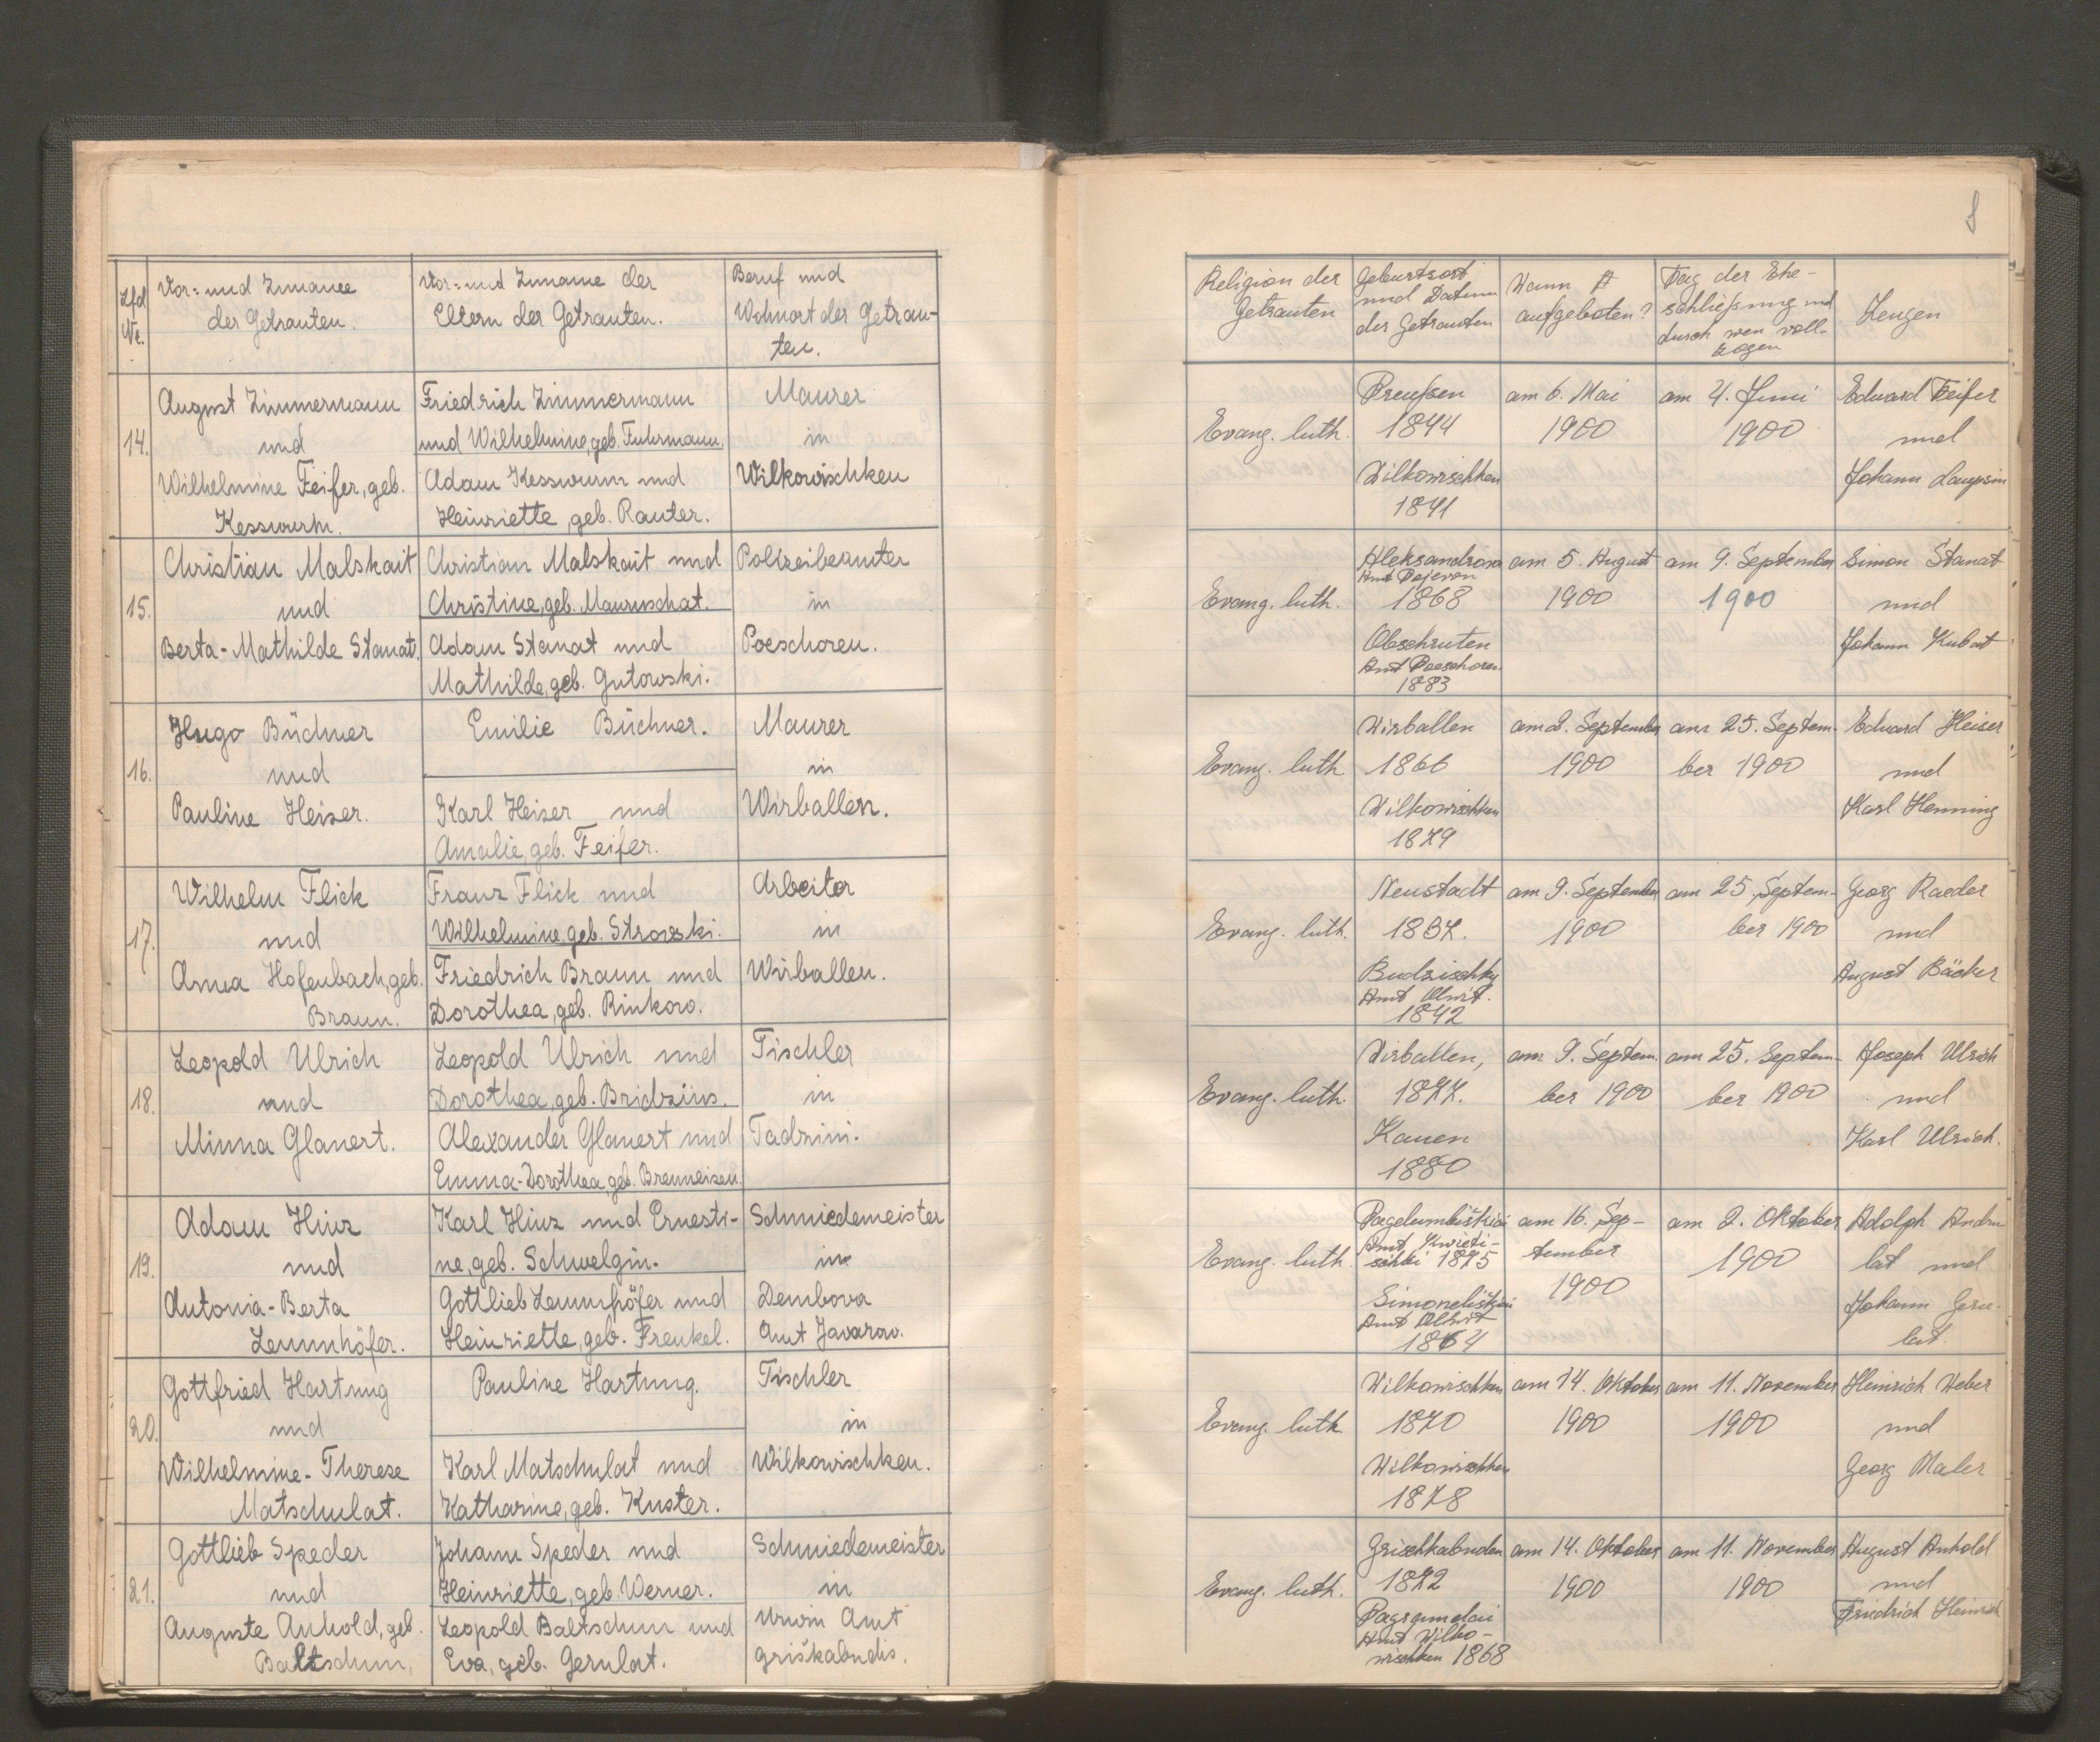 8
Lfd Nr.
Vor= und Zuname
der Getrauten.
Vor= und Zuname der
Eltern der Getrauten.
Beruf und
Wohnort der Getrau-
ten.
Religion der
Getrauten
Geburtsort
und Datum
der Getrauten
Wann
aufgeboten?
Tag der Ehe-
schließung und
durch wen voll-
zogen
Zeugen
14.
August Zimmermann
und
Wilhelmine Feifer, geb.
Kesswurm.
Friedrich Zimmermann
und Wilhelmine, geb. Fuhrmann.
Adam Kesswurm und
Heinriette, geb. Rauter.
Maurer
in
Wilkowischken
Evang. luth.
Preußen
1844
Wilkowischken
1841
am 6. Mai
1900
am 4. Juni
1900
Eduard Feifer
und
Johann
15.
Christian Malskait
und
Berta-Mathilde Stanat.
Christian Malskait und
Christine, geb. Mauruschat.
Adam Stanat und
Mathilde, geb. Gutowski.
Polizeibeamter
in
Poeschoren.
Evang. luth.
Aleksandrowo
Amt Pajevon
1868
Obschruten
Amt Poeschoren
1883
am 5. August
1900
am 9. September
1900
Simon Stanat
und
Johann Kubat
16.
Hugo Büchner
und
Pauline Heiser.
Emilie Büchner.
Karl Heiser und
Amalie, geb. Feifer.
Maurer
in
Wirballen.
Evang. luth.
Wirballen
1866
Wilkowischken
1879
am 2. September
1900
am 25. Septem-
ber 1900
Eduard Heiser
und
Karl Henning
17.
Wilhelm Flick
und
Anna Hofenbach, geb.
Braun.
Franz Flick und
Wilhelmine, geb. Strowski.
Friedrich Braun und
Dorothea, geb. Rinkow.
Arbeiter
in
Wirballen.
Evang. luth.
Neustadt
1837.
Budzischky
Amt
1842
am 9. September
1900
am 25. Septem-
ber 1900
Georg Raeder
und
August Bäcker
18.
Leopold Ulrich
und
Minna Glanert.
Leopold Ulrich und
Dorothea, geb. Bridzius.
Alexander Glanert und
Emma-Dorothea, geb. Brenneisen.
Tischler
in
Tadzini.
Evang. luth.
Wirballen,
1877.
Kauen
1880
am 9. Septem-
ber 1900
am 25. Septem-
ber 1900
Joseph Ulrich
und
Karl Ulrich.
19.
Adam Hinz
und
Antonia-Berta
Lemmhöfer.
Karl Hinz und Ernesti-
ne, geb. Schwelgin.
Gottlieb Lemmhöfer und
Heinriette, geb. Frenkel.
Schmiedemeister
in
Dembova
Amt Javarow.
Evang. luth.
Pagelumbiškiai
Amt Kwieti-
schki 1875
Simoneliškiai
Amt
1864
am 16. Sep-
tember
1900
am 2. Oktober
1900
Adolph Andru-
lat und
Johann Geru-
lat
20.
Gottfried Hartung
und
Wilhelmine-Therese
Matschulat.
Pauline Hartung.
Karl Matschulat und
Katharine, geb. Kuster.
Tischler
in
Wilkowischken.
Evang. luth.
Wilkowischken
1870
Wilkowischken
1878
am 14. Oktober
1900
am 11. November
1900
Heinrich Weber
und
Georg Maler
21.
Gottlieb Speder
und
Auguste Anhold, geb.
Baltschun,
Johann Speder und
Heinriette, geb. Werner.
Leopold Baltschun und
Eva, geb. Gerulat.
Schmiedemeister
in
Urwin Amt
Griškabudis.
Evang. luth.
Grischkabuden
1872
Pagramdai
Amt Wilko-
wischken 1868
am 14. Oktober
1900
am 11. November
1900
August Anhold
und
Friedrich Heinrich